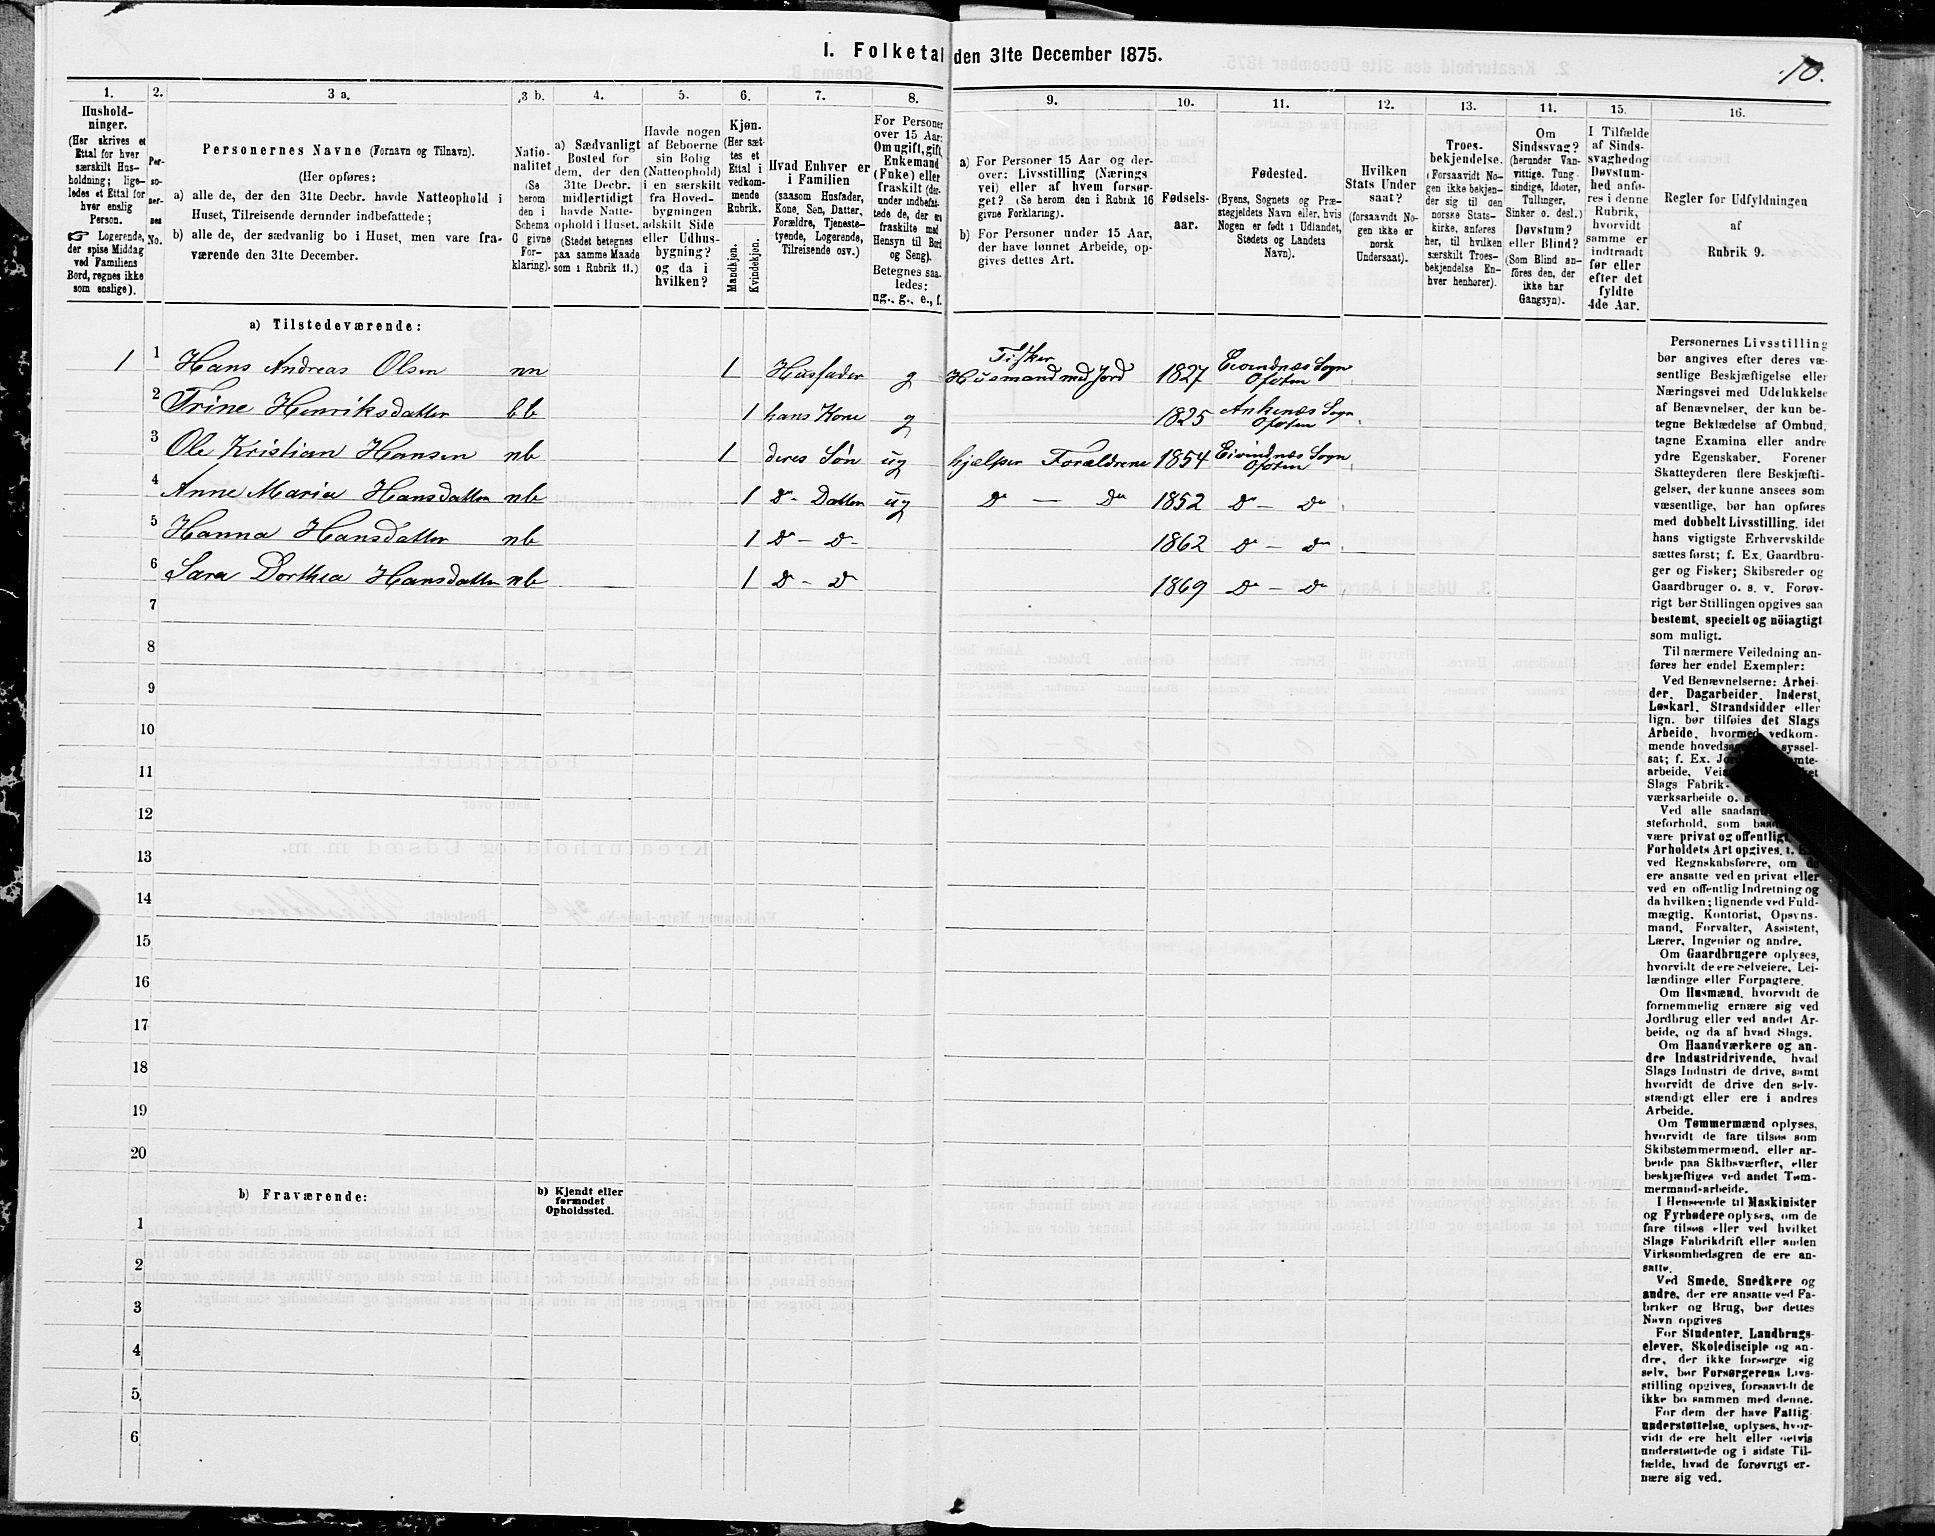 I. Folketal den 31te December 1875.
10.
1.
Hushold-
ninger.
(Her skrives et
Ettal for hver
særskilt Hus-
holdning; lige-
ledes et Ettal for
hver enslig
Person.
☞ Logerende,
der spise Middag
ved Familiens
Bord, regnes ikke
som enslige).
2.
Per-
so-
ner-
nes
No.
3 a.
Personernes Navne (Fornavn og Tilnavn).
(Her opføres:
a) alle de, der den 31te Decbr. havde Natteophold i
Huset, Tilreisende derunder indbefattede;
b) alle de, der sædvanlig bo i Huset, men vare fra-
værende den 31te December.
3 b.
Natio-
nalitet
(Se
herom
den i
Schema
O givne
For-
klaring).
4.
a) Sædvanligt
Bosted for
dem, der den
31te Decbr.
midlertidigt
havde Natte-
ophold i Huset.
(Stedet betegnes
paa samme Maade
som i Rubrik 11.)
5.
Havde nogen
af Beboerne
sin Bolig
(Natteophold)
i en særskilt
fra Hoved-
bygningen
adskilt Side
eller Udhus-
bygning?
og da i
hvilken?
6.
Kjøn.
(Her sæt-
tes et
Ettal i
vedkom-
mende
Rubrik.
Mandkjøn.
Kvindekjøn.
7.
Hvad Enhver er
i Familien
(saasom Husfader,
Kone, Søn, Datter,
Forældre, Tjeneste-
tyende, Logerende,
Tilreisende osv.)
8.
For Personer
over 15 Aar:
Om ugift, gift,
Enkemand
(Enke) eller
fraskilt (der-
under indbefat-
tede de, der er
fraskilte med
Hensyn til Bord
og Seng).
Betegnes saa-
ledes:
ug., g., e., f.
9.
a) For Personer 15 Aar og der-
over: Livsstilling (Nærings
vei) eller af hvem forsør-
get? (Se herom den i Rubrik 16
givne Forklaring).
b) For Personer under 15 Aar,
der have lønnet Arbeide, op-
gives dettes Art.
10.
Fødsels-
aar.
11.
Fødested.
(Byens, Sognets og Præ-
stegjeldets Navn eller, hvis
Nogen er født i Udlandet,
Stedets og Landets
Navn).
12.
Hvilken
Stats Under
saat?
(forsaavidt No-
gen ikke er
norsk
Undersaat).
13.
Troes-
bekjendelse.
(Forsaavidt No-
gen ikke bekjen-
der sig til den
norske Stats-
kirke, anføres
her, til hvilken
særskilt Troes-
bekjendelse En-
hver henhører).
14.
Om
Sindssvag?
(herunder Van-
vittige. Tung-
sindige, Idioter,
Tullinger,
Sinker o. desl.)
Døvstum?
eller Blind?
(Som Blind an-
føres den, der
ikke har
Gangsyn).
15.
I Tilfælde
af Sinds-
svaghed og
Døvstum-
hed anfø-
res i denne
Rubrik,
hvorvidt
samme er
indtraadt
før eller
efter det
fyldte
4de Aar.
16.
Regler for Udfyldningen
af
Rubrik 9.
a) Tilstedeværende:
1 1 Hans Andreas Olsen nn 1 Husfader g Fisker Husmand med Jord 1827 Eivindnæs Sogn Ofoten
2 Trine Henriksdatter bb 1 hans Kone g 1825 Ankenæs Sogn Ofoten
3 Ole Kristian Hansen nb 1 deres Søn ug hjælper Forældrene 1854 Eivindnæs Sogn Ofoten
4 Anne Maria Hansdatter nb 1 Do - Datter ug Do — Do 1852 Do — Do
5 Hanna Hansdatter nb 1 Do - Do - 1862 Do — Do
6 Sara Dorthea Hansdatter nb 1 Do - Do 1869 Do — Do
7
8
9
10
11
12
13
14
15
16
17
18
19
20
b) Fraværende:
b) Kjendt eller
formodet
Opholdssted.
1
2
3
4
5
6
Personernes Livsstilling
bør angives efter deres væ-
sentlige Beskjæftigelse eller
Næringsvei med Udelukkelse
af Benævnelser, der kun be-
tegne Beklædelse af Ombud,
tagne Examina eller andre
ydre Egenskaber. Forener
Skatteyderen flere Beskjæfti-
gelser, der kunne ansees som
væsentlige, bør han opføres
med dobbelt Livsstilling, idet
hans vigtigste Erhvervskilde
sættes først; f. Ex. Gaardbru-
ger og Fisker; Skibsreder og
Gaardbruger o. s. v. Forøv-
rigt bør Stillingen opgives saa
bestemt, specielt og nöiagtigt
som muligt.
Til nærmere Veiledning an-
føres her endel Exempler:
Ved Benævnelserne: Arbei-
der, Dagarbeider, Inderst,
Løskarl, Strandsidder eller
lign. bør tilføies det Slags
Arbeide, hvormed vedkom-
mende hovedsagelig sysselsat; f. Ex.
arbeide,
Slags Fabrik-
værksarbeide o. s.
Ved alle saadanne
steforhold, som
være privat og offentligt,
Forholdets Art opgives,
ved Regnskabsførere, om de
ere ansatte ved en privat eller
ved en offentlig Indretning og
da hvilken; lignende ved Fuld-
mægtig, Kontorist, Opsyns-
mand, Forvalter, Assistent,
Lærer, Ingeniør og andre.
Om Gaardbrugere oplyses,
hvorvidt de ere Selveiere, Lei-
lændinge eller Forpagtere.
Om Husmænd, hvorvidt de
fornemmelig ernære sig ved
Jordbrug eller ved andet Ar-
beide, og da af hvad Slags.
Om Haandværkere og an-
dre Industridrivende, hvad
Slags Industri de drive, samt
hvorvidt de drive den selv-
stændigt eller ere i andres
Arbeide.
Om Tømmermænd oplyses,
hvorvidt de fare tilsøs som
Skibstømmermænd, eller ar-
beide paa Skibsværfter, eller
beskjæftiges ved andet Tøm-
mermand-arbeide.
I Henseende til Maskinister
og Fyrbødere oplyses, om de
fare tilsøs eller ved hvilket
Slags Fabrikdrift eller anden
Virksomhedsgren de ere an-
satte.
Ved Smede, Snedkere og
andre, der ere ansatte ved Fa-
briker og Brug, bør dettes
Navn opgives
For Studenter, Landbrugs-
elever, Skoledisciple og an-
dre, der ikke forsørge sig
selv, bør Forsørgerens Livs-
stilling opgives, forsaavidt de
ikke bo sammen med denne.
For dem der have Fattig-
understøttelse, oplyses, hvor-
vidt de ere helt eller delvis
understøttede og i sidste Til-
fælde, hvad de forøvrigt er-
nære sig ved.